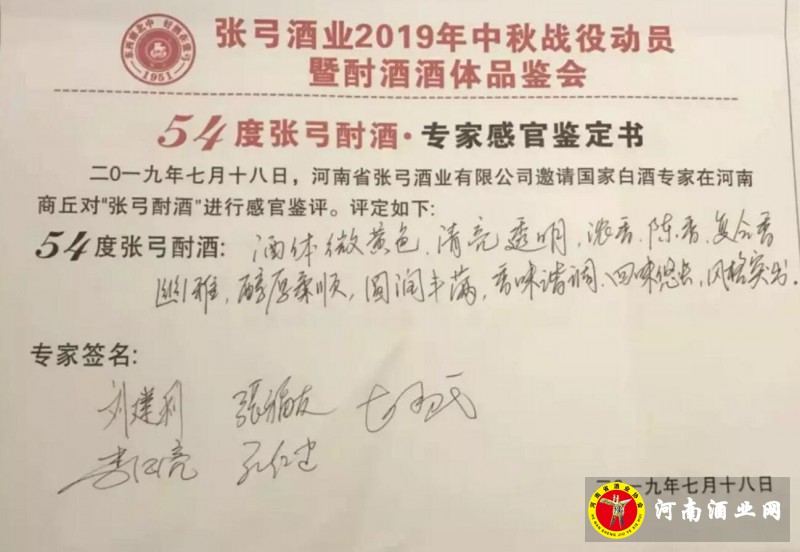 东西南北中 好酒在张弓
1951
张弓酒业2019年中秋战役动员
暨酎酒酒体品鉴会
54度张弓酎酒·专家感官鉴定书
二〇一九年七月十八日，河南省张弓酒业有限公司邀请国家白酒专家在河南
商丘对“张弓酎酒”进行感官鉴评。评定如下:
54度张弓酎酒: 酒体微黄色、清亮透明，浓香、陈香、复合香
幽雅，醇厚柔顺，圆润丰满，香味谐调、回味悠长，风格突出.
专家签名:
刘建利 張福友
李仁亮 孔仁忠
一九年七月十八日
河南省酒业协会
河南酒业网